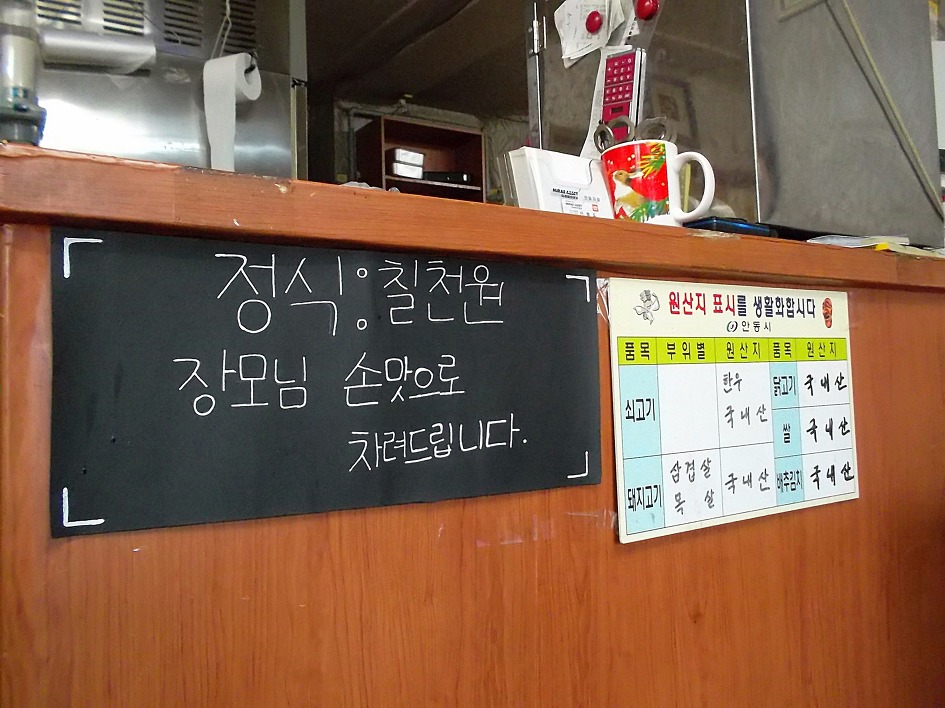 정식:칠천원
장모님 손맛으로
차려드립니다.
원산지 표시를 생활화합시다
안동시
품목 부위별 원산지 품목 원산지
쇠고기 한우 국내산 닭고기 국내산
쌀 국내산
돼지고기 삼겹살 목살 국내산 배추김치 국내산
MIRAE ASSET